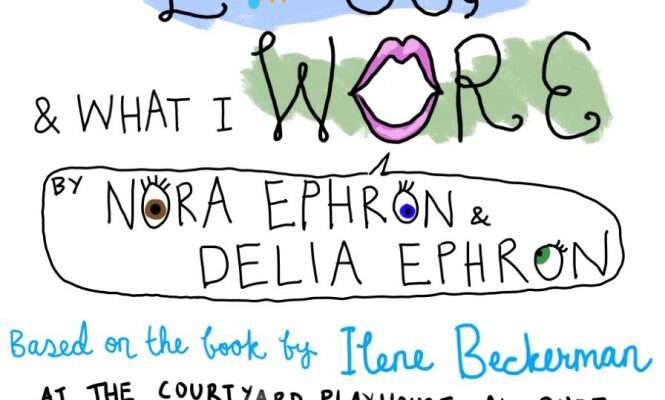 & WHAT I WORE
BY NORA EPHRON &
DELIA EPHRON
Based on the book by Ilene Beckerman
AT THE COURTYARD PLAYHOUSE